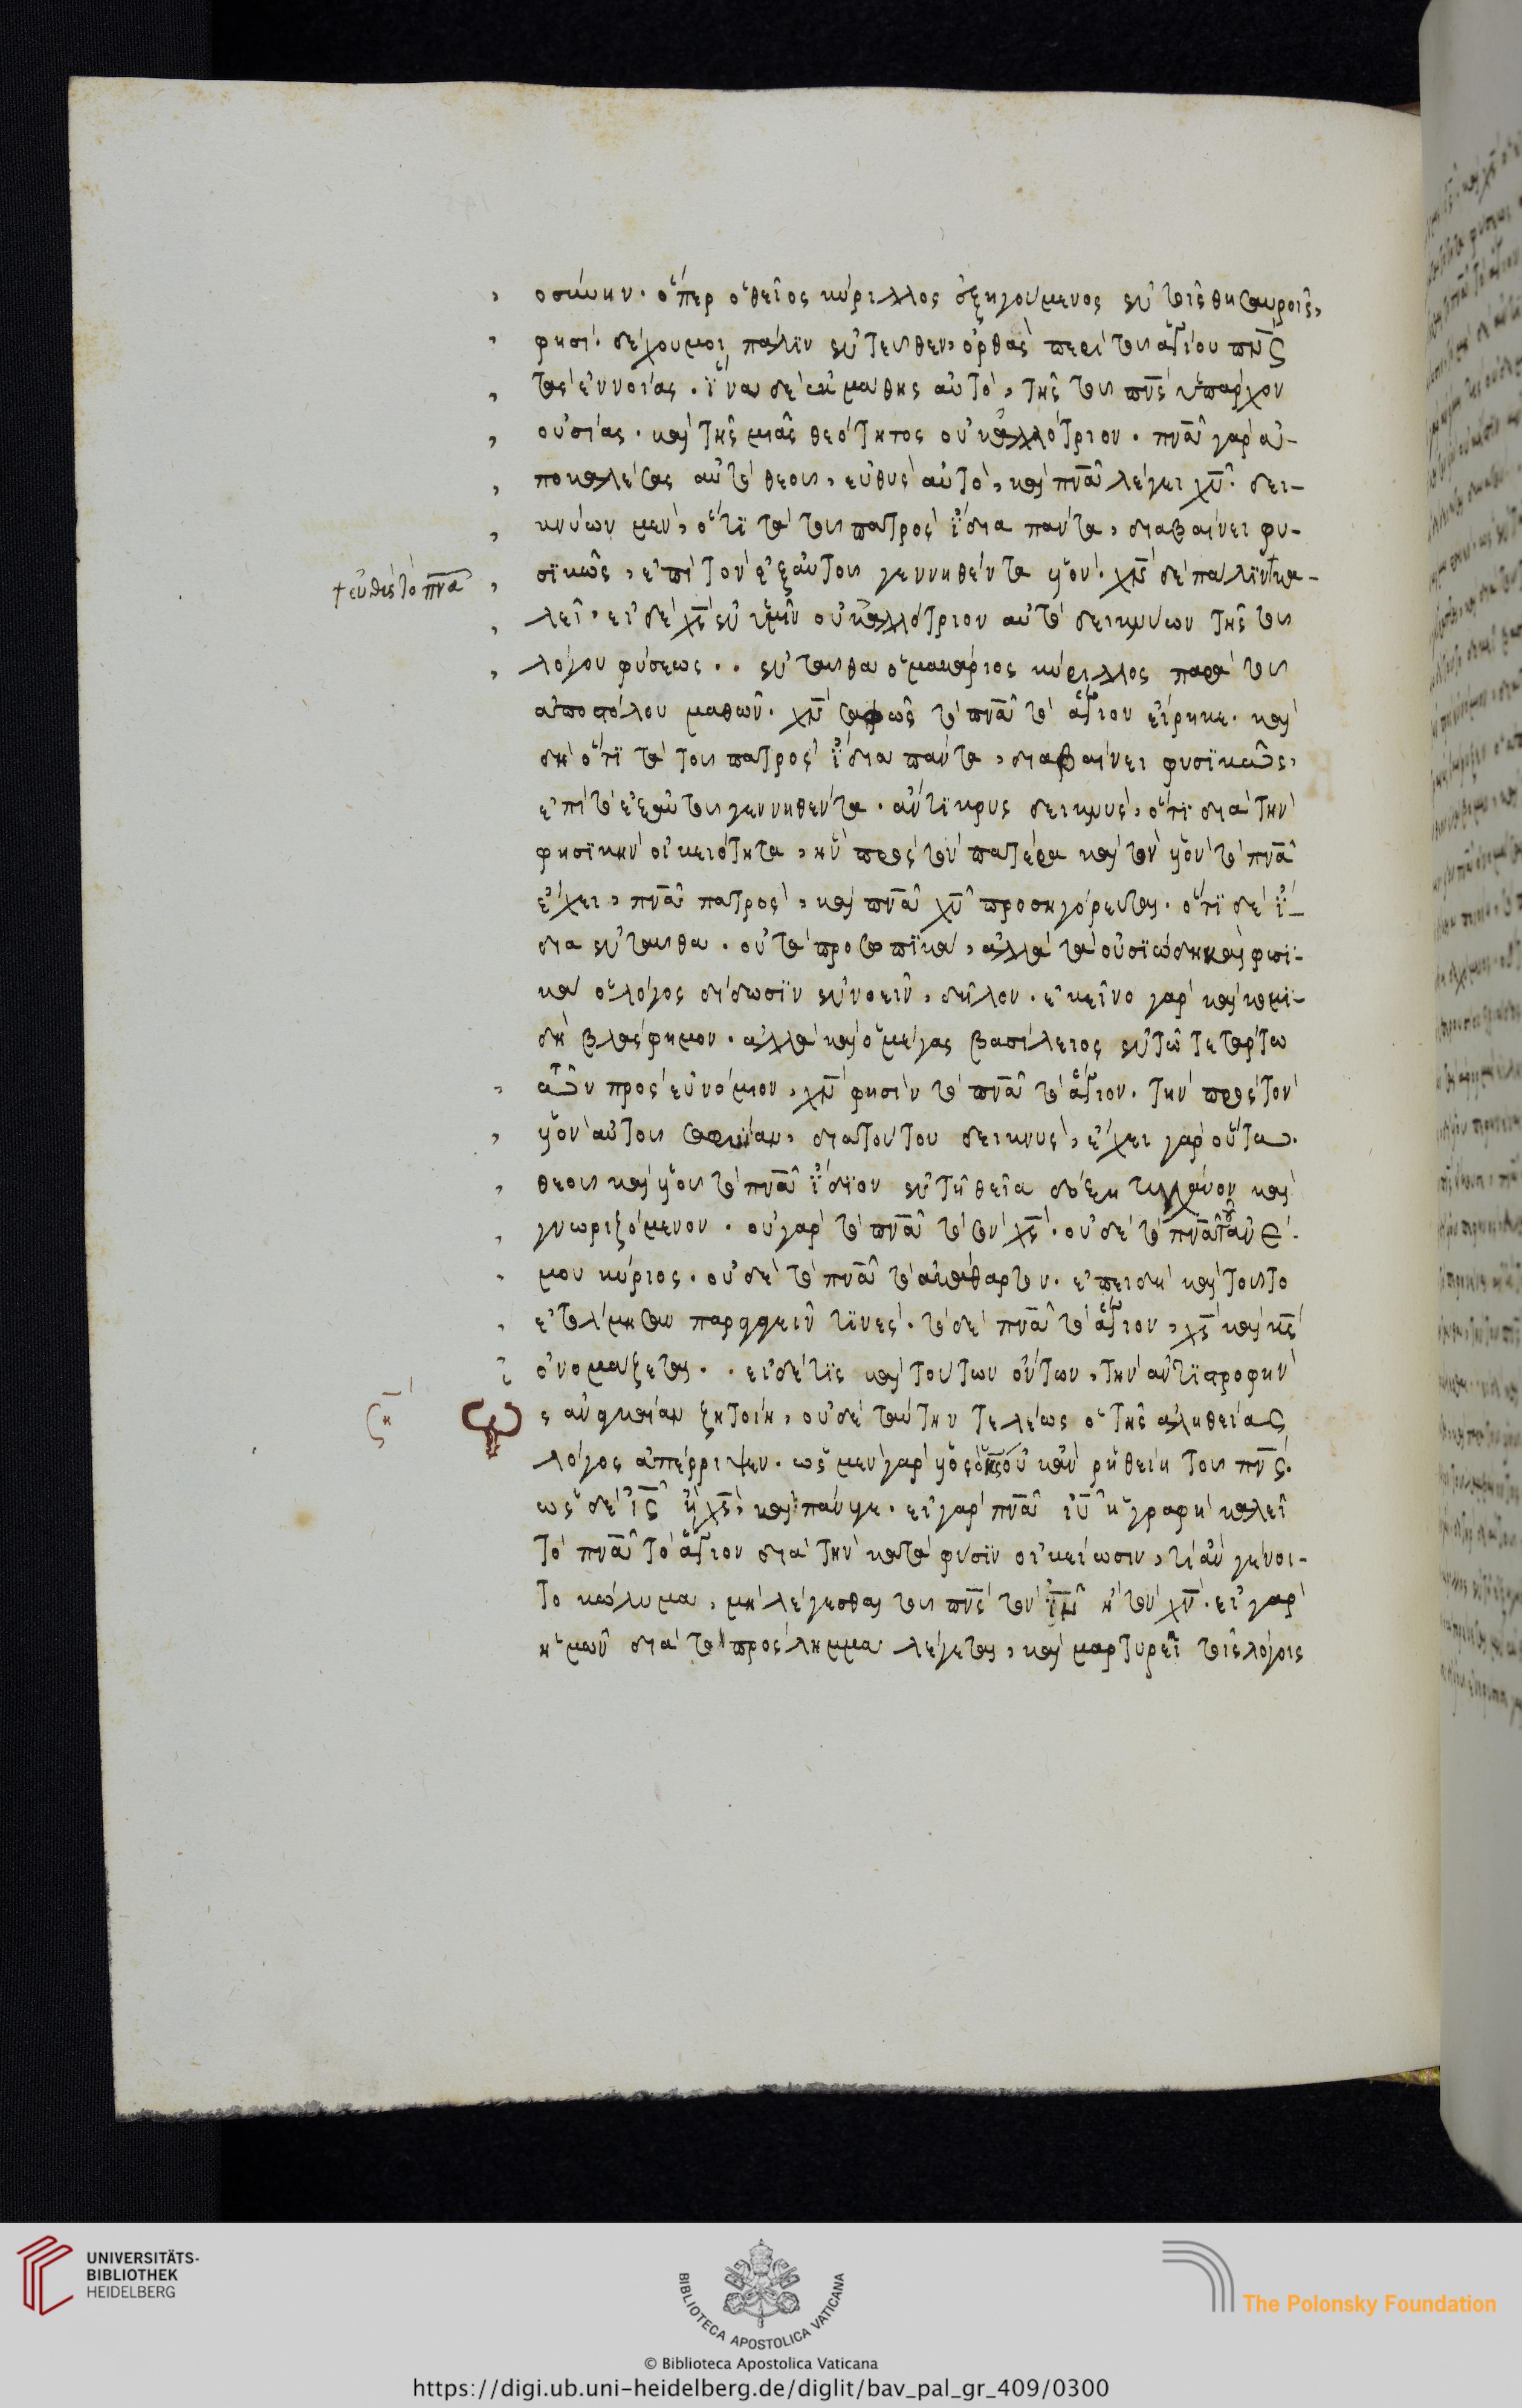 οσύνην. ὅπερ ὁ θεῖος κύριλλος ἐξηγούμενος ἐν τοῖς θησαυροῖς,
φησί. δέχου μοι πάλιν ἐντεῦθεν, ὀρθὰς περὶ τοῦ ἁγίου πν̅ς
τὰς ἐννοίας. ἵνα δὲ μάθης αὐτὸ, τῆς τοῦ πν̅ς ὑπάρχον
οὐσίας. καὶ τῆς μιᾶς θεότητος οὐκ ἀλλότριον. πν̅α γὰρ ἀ-
ποκαλέσας αὐτὸ θεοῦ, εὐθὺς αὐτὸ, καὶ πν̅α λέγει χ̅υ. δει-
κνύων μὲν, ὅτι τὰ τοῦ πατρὸς ἴδια πάντα, διαβαίνει φυ-
σικῶς, ἐπὶ τὸν ἐξ αὐτοῦ γεννηθέντα υἱόν. χ̅ν δὲ πάλιν κα-
+ εὐθὺς τὸ πν̅α
λεῖ. εἰ δὲ χ̅ς ἐν ὑμῖν οὐκ ἀλλότριον αὐτὸ δεικνύων τῆς τοῦ
λόγου φύσεως. . ἐνταῦθα ὁ μακάριος κύριλλος παρὰ τοῦ
ἀποστόλου μαθὼν. χ̅ν σαφῶς τὸ πν̅α τὸ ἅγιον εἴρηκε. καὶ
δὴ ὅτι τὰ τοῦ πατρὸς ἴδια πάντα, διαβαίνει φυσικῶς,
ἐπὶ τὸ ἐξ αὐτοῦ γεννηθέντα. ἄντικρυς δεικνὺς, ὅτι διὰ τὴν
φησικὴν οἰκειότητα, ἣν πρὸς τὸν πατέρα καὶ τὸν υἱὸν τὸ πν̅α
ἔχει, πν̅α πατρὸς, καὶ πν̅α χ̅υ προσηγόρευται. ὅτι δὲ ἴ-
δια ἐνταῦθα. οὐ τὰ προσωπικὰ, ἀλλὰ τὰ οὐσιώδη καὶ φυσι-
κὰ ὁ λόγος δίδωσιν ἐννοεῖν, δῆλον. ἐκεῖνο γὰρ καὶ κομι-
δῆ βλάσφημον. ἀλλὰ καὶ ὁ μέγας βασίλειος ἐν τῶ τετάρτω
τῶν πρὸς εὐνόμιον, χ̅ν φησὶν τὸ πν̅α τὸ ἅγιον. τὴν πρὸς τὸν
υἱὸν αὐτοῦ διὰ τούτου δεικνὺς, ἔχει γὰρ οὕτω.
θεοῦ καὶ υἱοῦ τὸ πν̅α ἴδιον ἐν τῆ θεία δόξη τυγχάνον καὶ
γνωριζόμενον. οὐ γὰρ τὸ πν̅α τὸ ὂν χ̅ς. οὐδὲ τὸ πν̅α τοῦ ἀνέ-
μου κύριος. οὐδὲ τὸ πν̅α τὸ ἀκάθαρτον. ἐπειδὴ καὶ τοῦτο
ἐτόλμησαν παρεγγεῖν τινὲς. τὸ δὲ πν̅α τὸ ἅγιον, χ̅ς καὶ κ̅ς
ὀνομάζεται. . εἰ δέ τις καὶ τούτων ὄντων, τὴν ἀντιστροφὴν
ς ἀναγκαίαν ζητοίη, οὐδὲ ταύτην τελέως ὁ τῆς ἀληθείας
ϛη
λόγος ἀπέρριψεν. ὡς μὲν γὰρ υἱὸς ὁ κ̅ς οὐκ ἂν ῥηθείη τοῦ πν̅ς.
ὡς δὲ ι̅ς ἢ χ̅ς, καὶ πάνυ γε. εἰ γὰρ πν̅α ι̅υ ἡ γραφὴ καλεῖ
τὸ πν̅α τὸ ἅγιον διὰ τὴν κατὰ φύσιν οἰκείωσιν, τί ἂν γένοι-
το κώλυμα, μὴ λέγεσθαι τοῦ πν̅ς τὸν ι̅ν ἢ τὸν χ̅ν. εἰ γὰρ
ἡμῶν διὰ τὸ πρόςλημμα λέγεται, καὶ μαρτυρεῖ τοῖς λόγοις
UNIVERSITÄTS-
BIBLIOTHEK
HEIDELBERG
BIBLIOTECA APOSTOLICA VATICANA
The Polonsky Foundation
© Biblioteca Apostolica Vaticana
https://digi.ub.uni-heidelberg.de/diglit/bav_pal_gr_409/0300